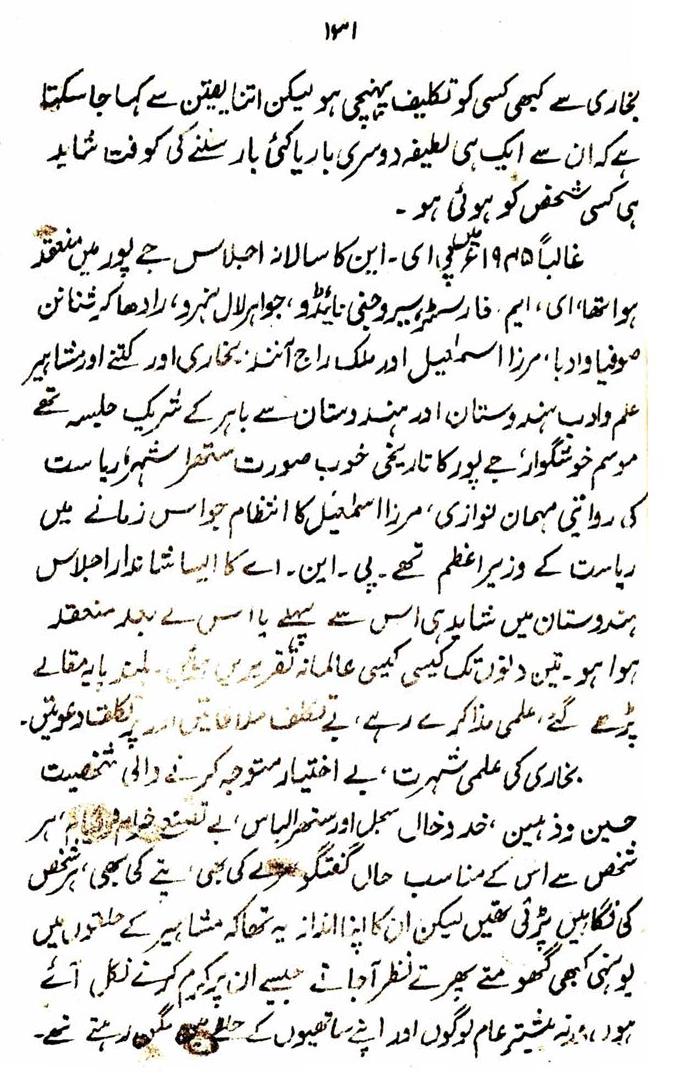 ۱۳۱
بخاری سے کبھی کسی کو تکلیف پہنچی ہو لیکن اتنا یقین سے کہا جا سکتا
ہے کہ ان سے ایک ہی لطیفہ دوسری بار یا کئی بار سننے کی کوفت شاید
ہی کسی شخص کو ہوئی ہو ۔
غالباً ۱۹۴۵ء میں پی ای ۔ این کا سالانہ اجلاس جے پور میں منعقد
ہوا تھا، ای، ایم ۔ فارسٹر، سروجنی نائیڈو، جواہر لال نہرو، رادھا کرشنانن
صوفیا وادیا، مرزا اسمٰعیل اور ملک راج آنند، بخاری اور کتنے اور مشاہیر
علم و ادب ہندوستان اور ہندوستان سے باہر کے شریک جلسہ تھے
موسم خوشگوار، جے پور کا تاریخی خوب صورت ستھرا شہر، ریاست
کی روایتی مہمان نوازی، مرزا اسمٰعیل کا انتظام جو اس زمانے میں
ریاست کے وزیر اعظم تھے ۔ پی ۔ این ۔ اے کا ایسا شاندار اجلاس
ہندوستان میں شاید ہی اس سے پہلے یا اس کے بعد منعقد
ہوا ہو ۔ تین دنوں تک کیسی کیسی عالمانہ تقریریں ہوئیں ۔ بلند پایہ مقالے
پڑھے گئے، علمی مذاکرے رہے، بے تکلف ملاقاتیں اور پر تکلف دعوتیں ۔
بخاری کی علمی شہرت، بے اختیار متوجہ کرنے والی شخصیت
حسین و ذہین، خد و خال سجل اور ستھرا لباس، بے تصنع خرام و قیام، ہر
شخص سے اس کے مناسب حال گفتگو کی بھی، پتے کی بھی، ہر شخص
کی نگاہیں پڑتی تھیں لیکن ان کا اپنا انداز یہ تھا کہ مشاہیر کے حلقوں میں
یونہی کبھی گھومتے پھرتے نظر آجاتے جیسے ان پر کرم کرنے نکل آئے
ہوں، ورنہ بیشتر عام لوگوں اور اپنے ساتھیوں کے حلقے میں مگن رہتے تھے ۔